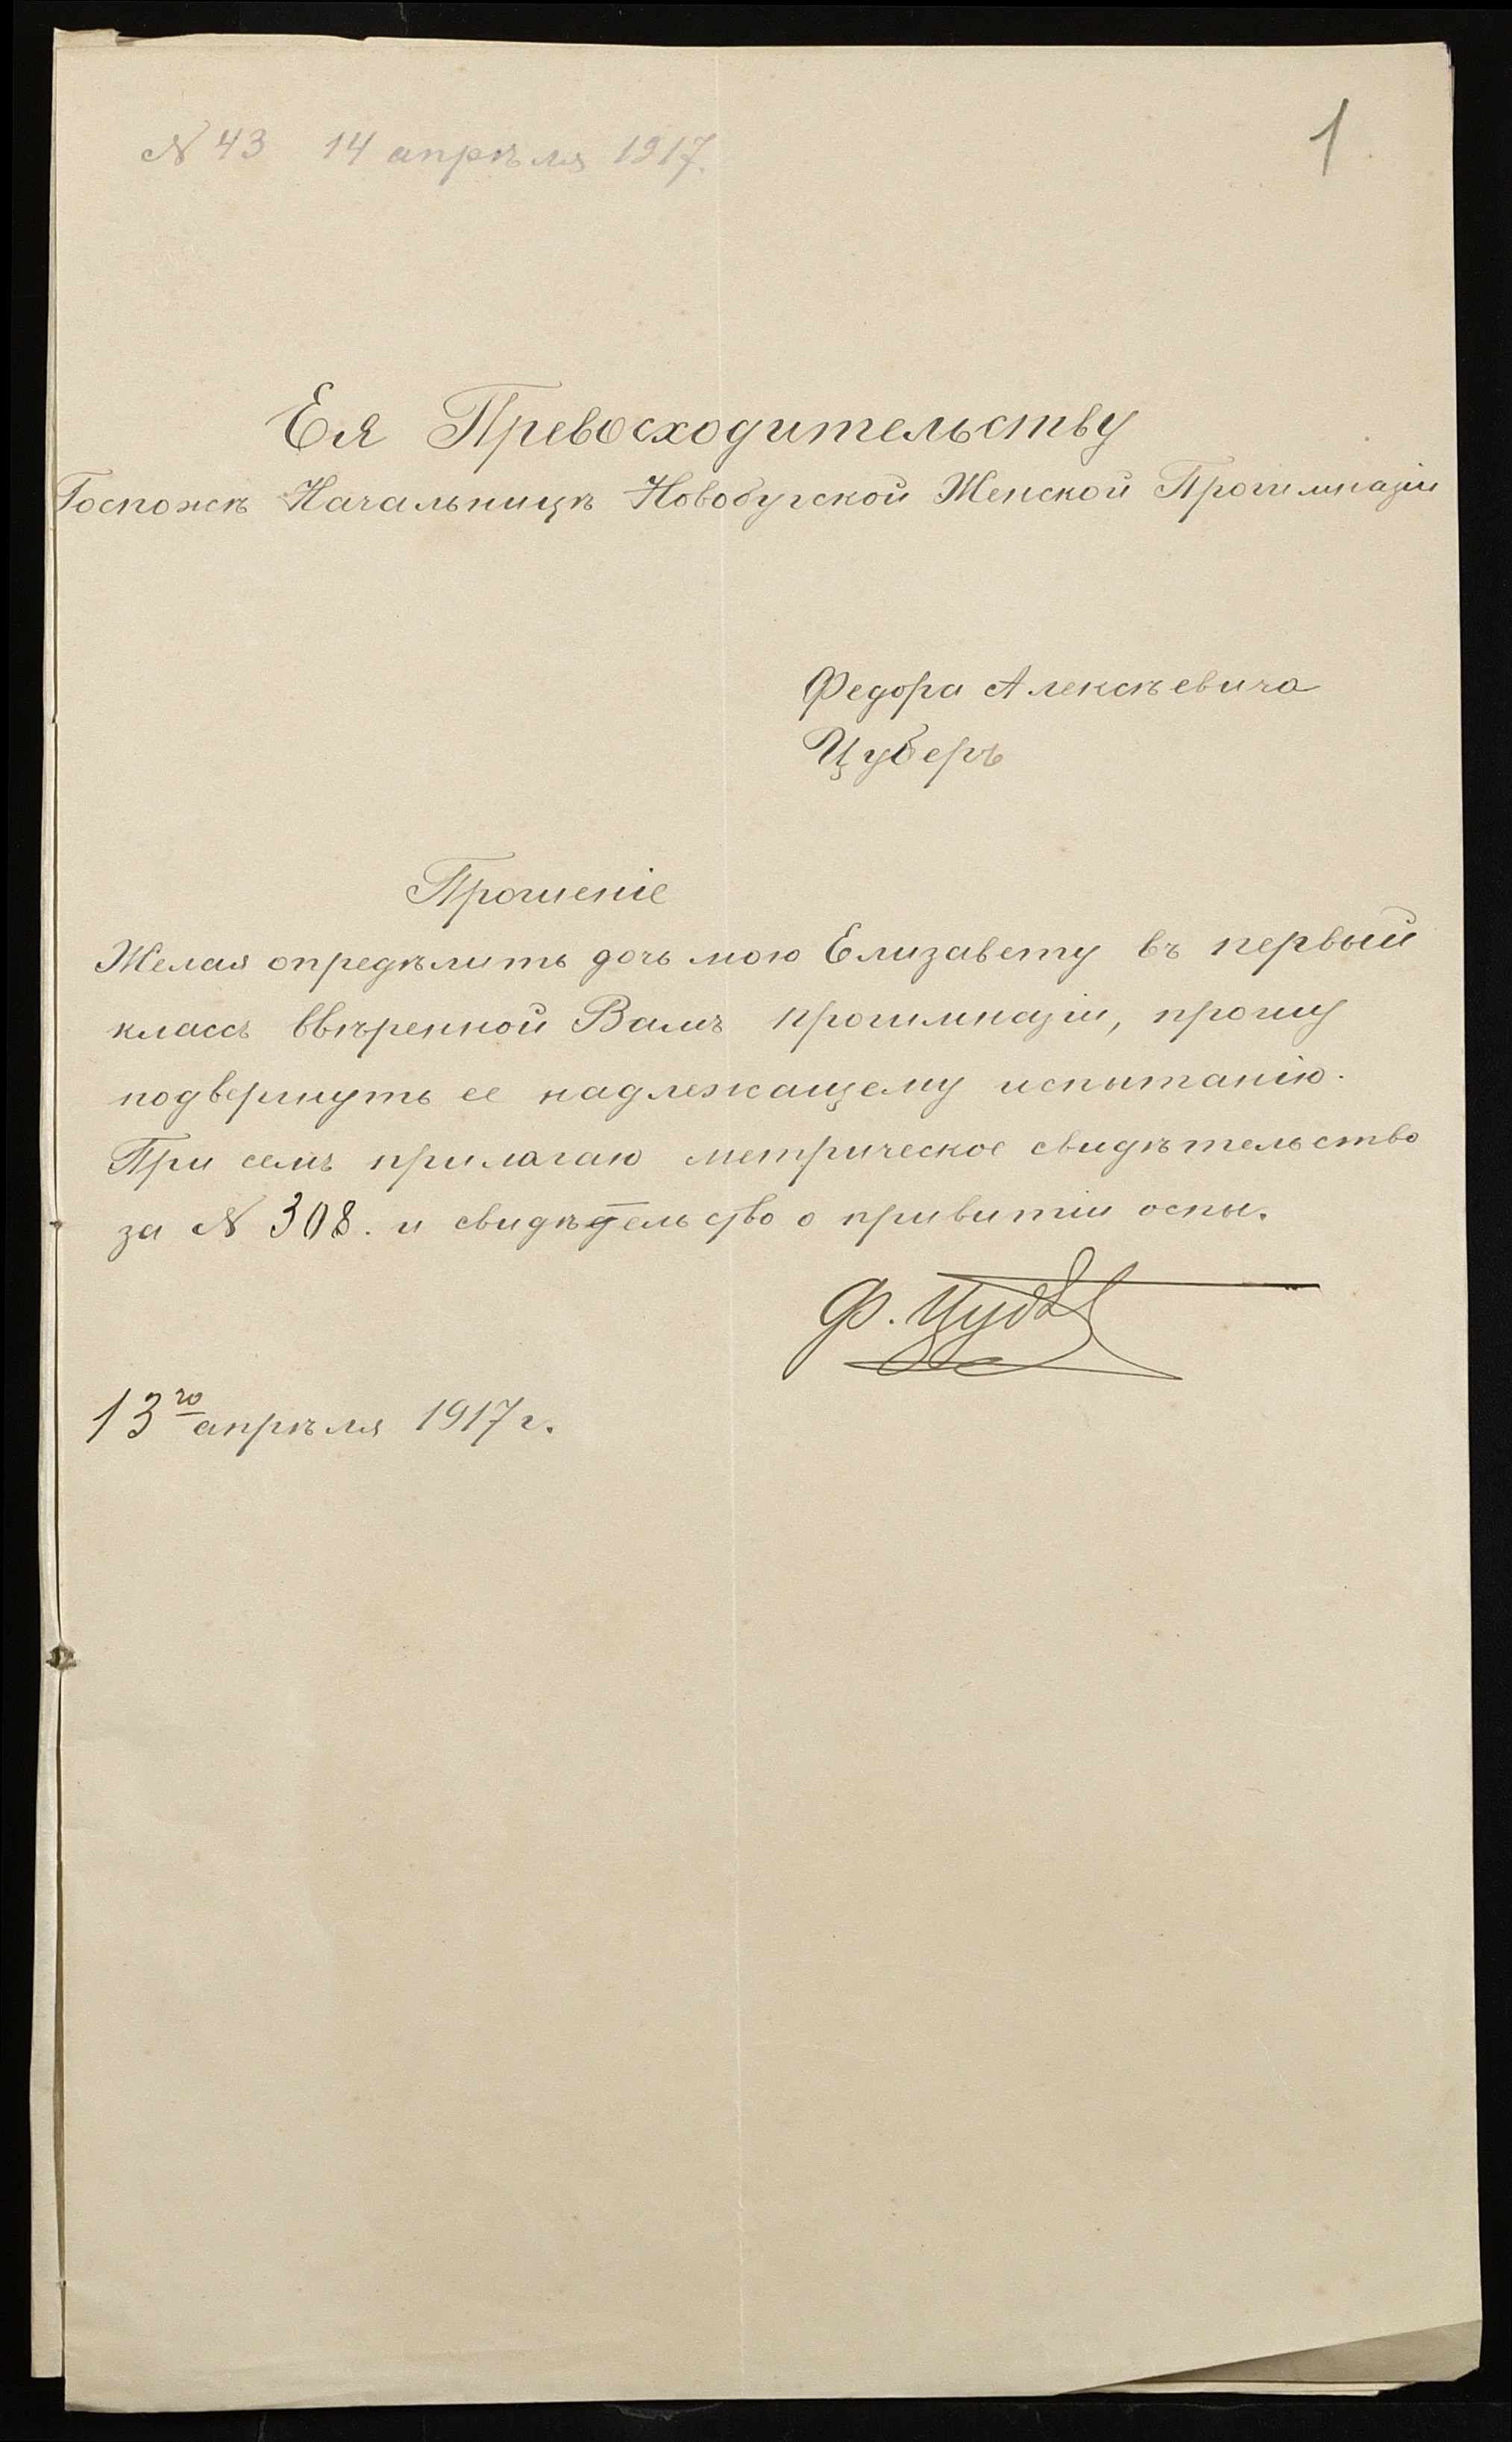 № 43 14 апрѣля 1917.
1
Ея Превосходительству
Госпожѣ Начальницѣ Новобугской Женской Прогимназіи
Федора Алексѣевича
Цуберъ
Прошеніе
Желая опредѣлить дочь мою Елизавету въ первый
классъ ввѣренной Вамъ прогимназіи, прошу
подвергнуть ее надлежащему испытанію.
При семъ прилагаю метрическое свидѣтельство
за № 308. и свидѣтельство о привитіи оспы.
Ф. Цубер
13го апрѣля 1917 г.